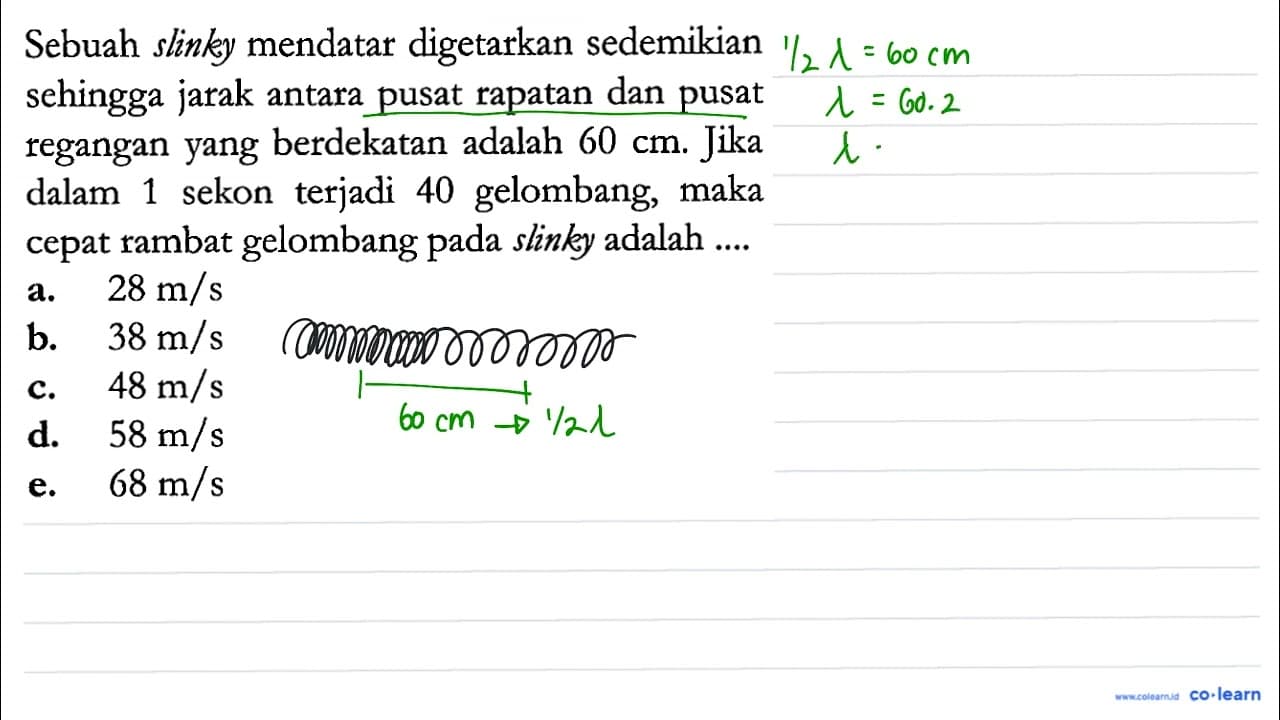 Sebuah slinky mendatar digetarkan sedemikian
sehingga jarak antara pusat rapatan dan pusat
regangan yang berdekatan adalah 60 cm. Jika
dalam 1 sekon terjadi 40 gelombang, maka
cepat rambat gelombang pada slinky adalah ....
a. 28 m/s
b. 38 m/s
c. 48 m/s
d. 58 m/s
e. 68 m/s
60 cm → 1/2 λ
1/2 λ = 60 cm
λ = 60.2
λ
www.colearn.id co·learn